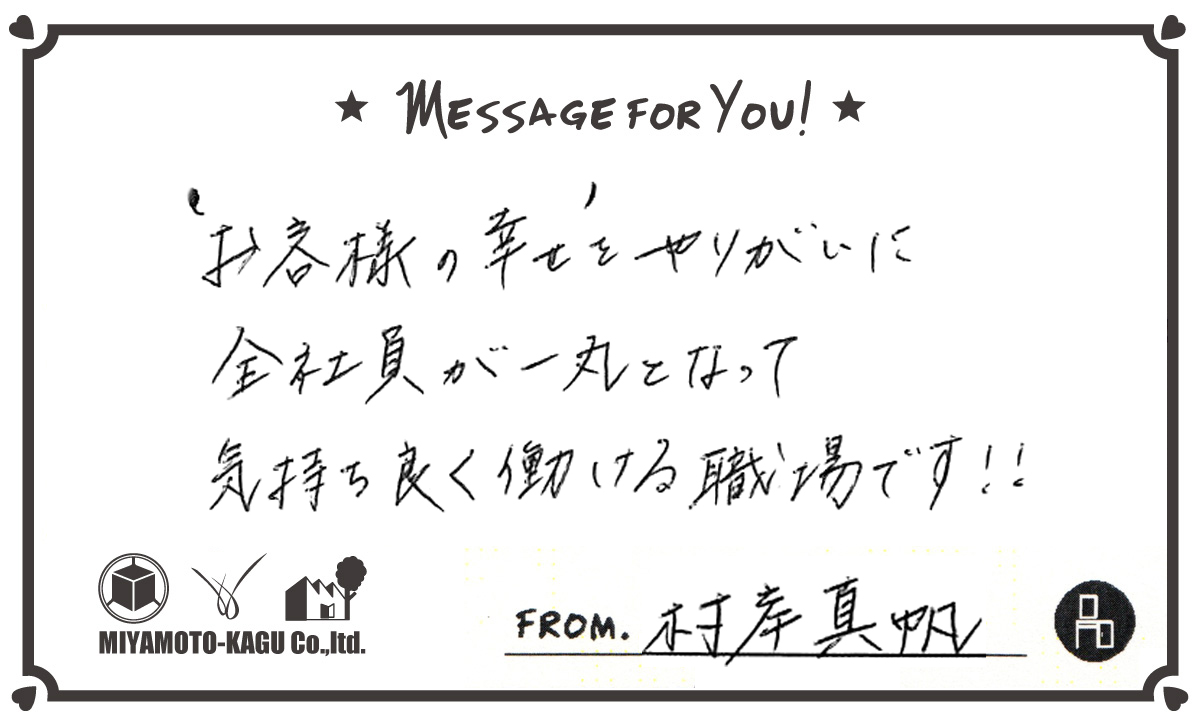 ★ MESSAGE FOR YOU! ★
“お客様の幸せ”をやりがいに
全社員が一丸となって
気持ち良く働ける職場です!!
MIYAMOTO-KAGU Co.,ltd.
FROM. 村岸真帆